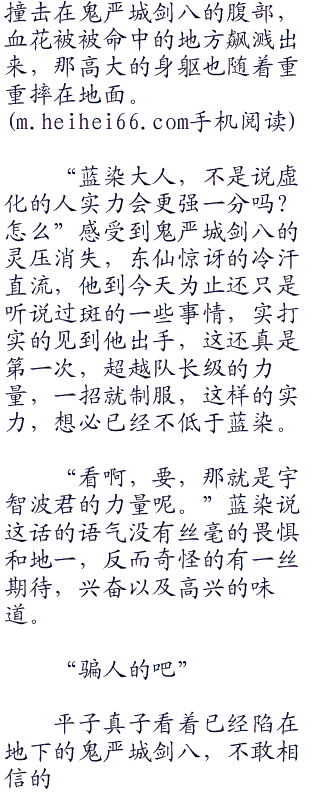 撞击在鬼严城剑八的腹部，
血花被被命中的地方飙溅出
来，那高大的身躯也随着重
重摔在地面。
(m.heihei66.com手机阅读)
“蓝染大人，不是说虚
化的人实力会更强一分吗？
怎么”感受到鬼严城剑八的
灵压消失，东仙惊讶的冷汗
直流，他到今天为止还只是
听说过斑的一些事情，实打
实的见到他出手，这还真是
第一次，超越队长级的力
量，一招就制服，这样的实
力，想必已经不低于蓝染。
“看啊，要，那就是宇
智波君的力量呢。”蓝染说
这话的语气没有丝毫的畏惧
和地一，反而奇怪的有一丝
期待，兴奋以及高兴的味
道。
“骗人的吧”
平子真子看着已经陷在
地下的鬼严城剑八，不敢相
信的